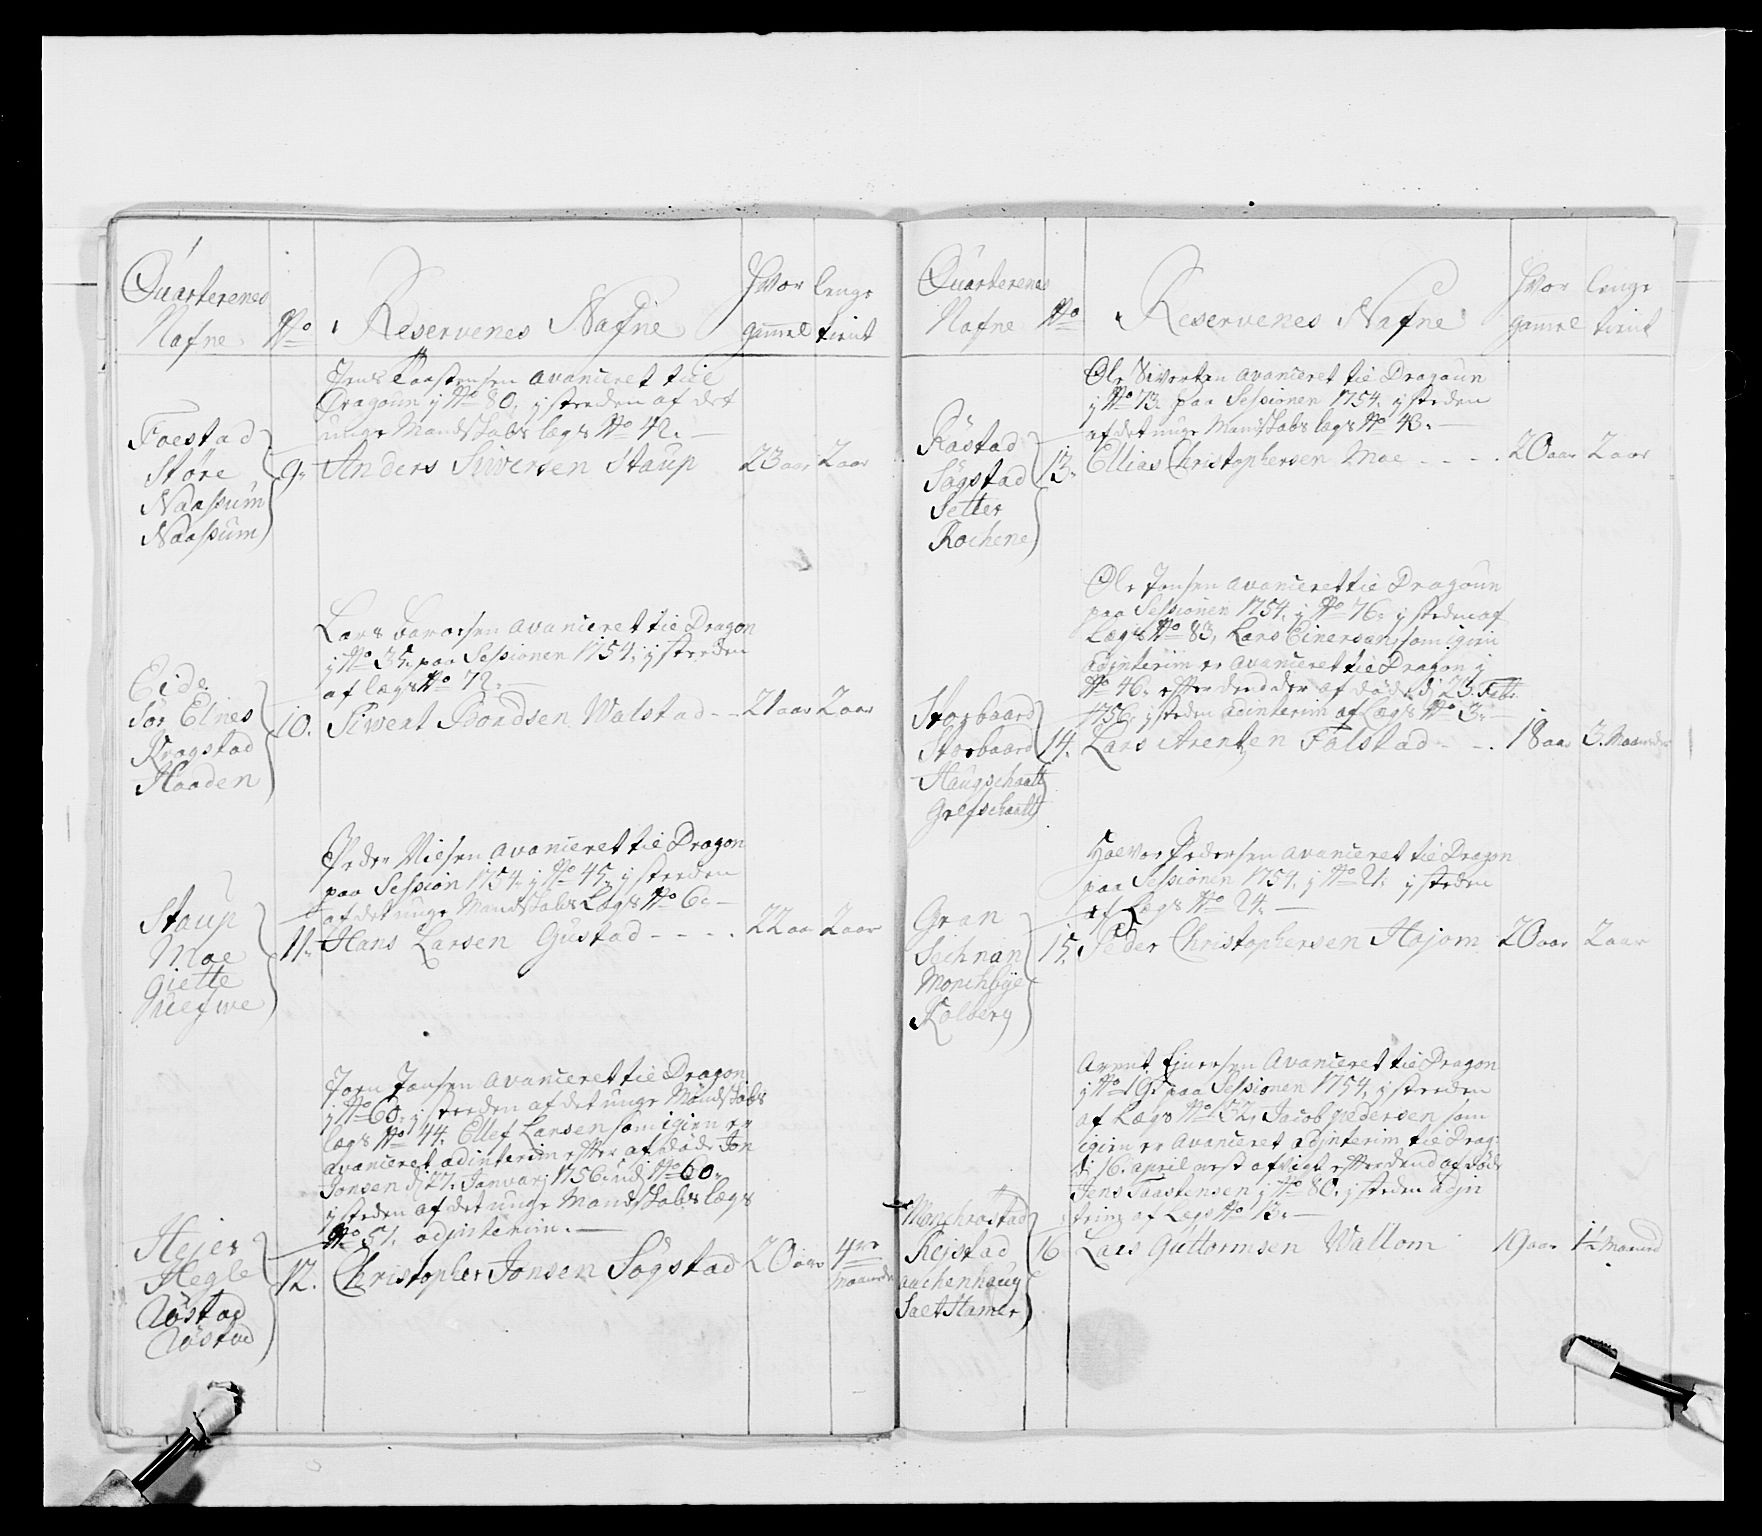 Quarterenes
Nafne
No
Reservenes Nafne
Hvor
gamel
lenge
tient
Jens Taastensen avanceret till
Dragoun j No 80, j steden af det
unge Mandskabs legs No 42.
Faestad
Støre
Naassum
Naassum
9.
Anders Siversen Staup
23 aar
2 aar
Lars avanceret til Dragon
j No 35, paa Sessionen 1754, j steden
af legs No 72.
Eide
Sør Elnes
Kragstad
Haaden
10.
Siwert Bordsen Walstad
21 aar
2 aar
Peder Nielsen avanceret til Dragon
paa Session 1754, j No 45, j steden
af det unge Mandskabs Legs No 6.
Staup
Moe
giette
11.
Hans Larsen Gustad
22 aar
2 aar
Joen Jonsen avanceret til Dragon
j No 60, j steden af det unge Mandskabs
legs No 44. Ellef Larsen som igien er
avanceret adinterim efter afdøde Jon
Jonsen dj 27. Januarj 1756. udj No 60.
j steden af det unge Mandskabs legs
No 51. adjnterim.
Hejer
Hegle
Røstad
Røstad
12.
Christopher Jonsen Søgstad
20 aar
4re
Maaneder
Quarterenes
Nafne
No
Reservenes Nafne
Hvor
gamel
lenge
tient
Ole Siverten avanceret til Dragoun
j No 73. paa Sessionen 1754. j steden
af det unge Mandskabs legs No 43.
Røstad
Søgstad
Setter
Rochene
13.
Ellias Christophersen Moe
20 aar
2 aar
Ole Jensen avanceret til Dragoun
paa Sessionen 1754. j No 76. j steden af
Legs No 83, Lars Einersen, som igien
adjnterim er avanceret til Dragon j
No 46. efter dend der af døde dj 23. Febr.
1756. j steden adinterim af Legs No 3.
Storbaard
Storbaard
Haugschaatt
Grefschaatt
14.
Lars Arentzen Falstad
18 aar
3. Maaneder
Halvor Pedersen avanceret til Dragon
paa Sessionen 1754. j No 21. j steden
af Legs No 24.
Gran
Sechnan
Monchbye
Kolberg
15.
Peder Christophersen Hojom
20 aar
2 aar
Arent Einersen Avanceret til Dragon
paa Sessionen 1754, j steden
af Legs No 52, Jacob Pedersen som
igien er avanceret adjnterim til Drag:
dj 16. april nest afvigt efter dend afdøde
Jens Taastensen j No 80. j steden adjn
terim af Legs No 13.
Monchrøstad
Reistad
aachenhaug
Salthamer
16.
Lars Guttormsen Wallom
19 aar
1½ Maaned